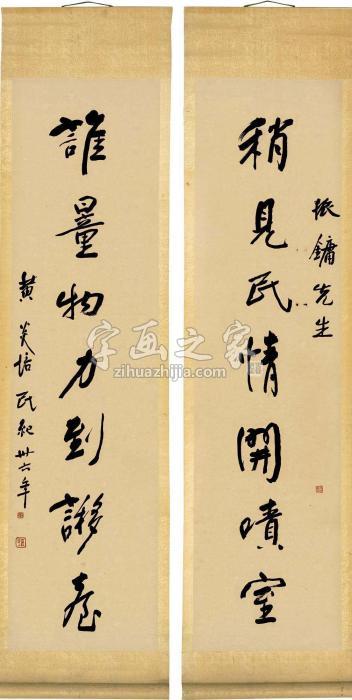 振鏞先生
稍見民情開嘖室
誰量物力到謻臺
黄炎培 民紀卅六年
字画之家
zihuazhijia.com